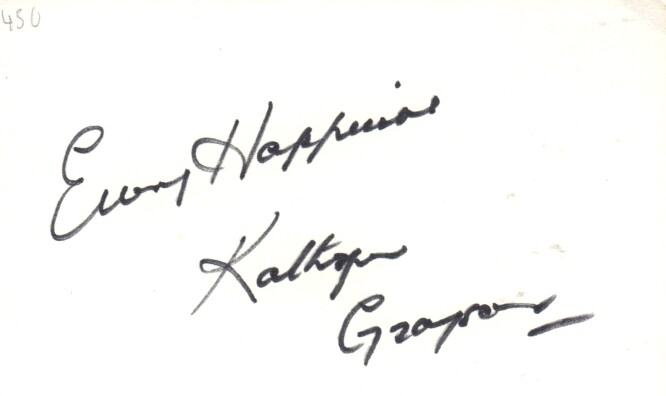 450
Every Happiness
Kathryn
Grayson